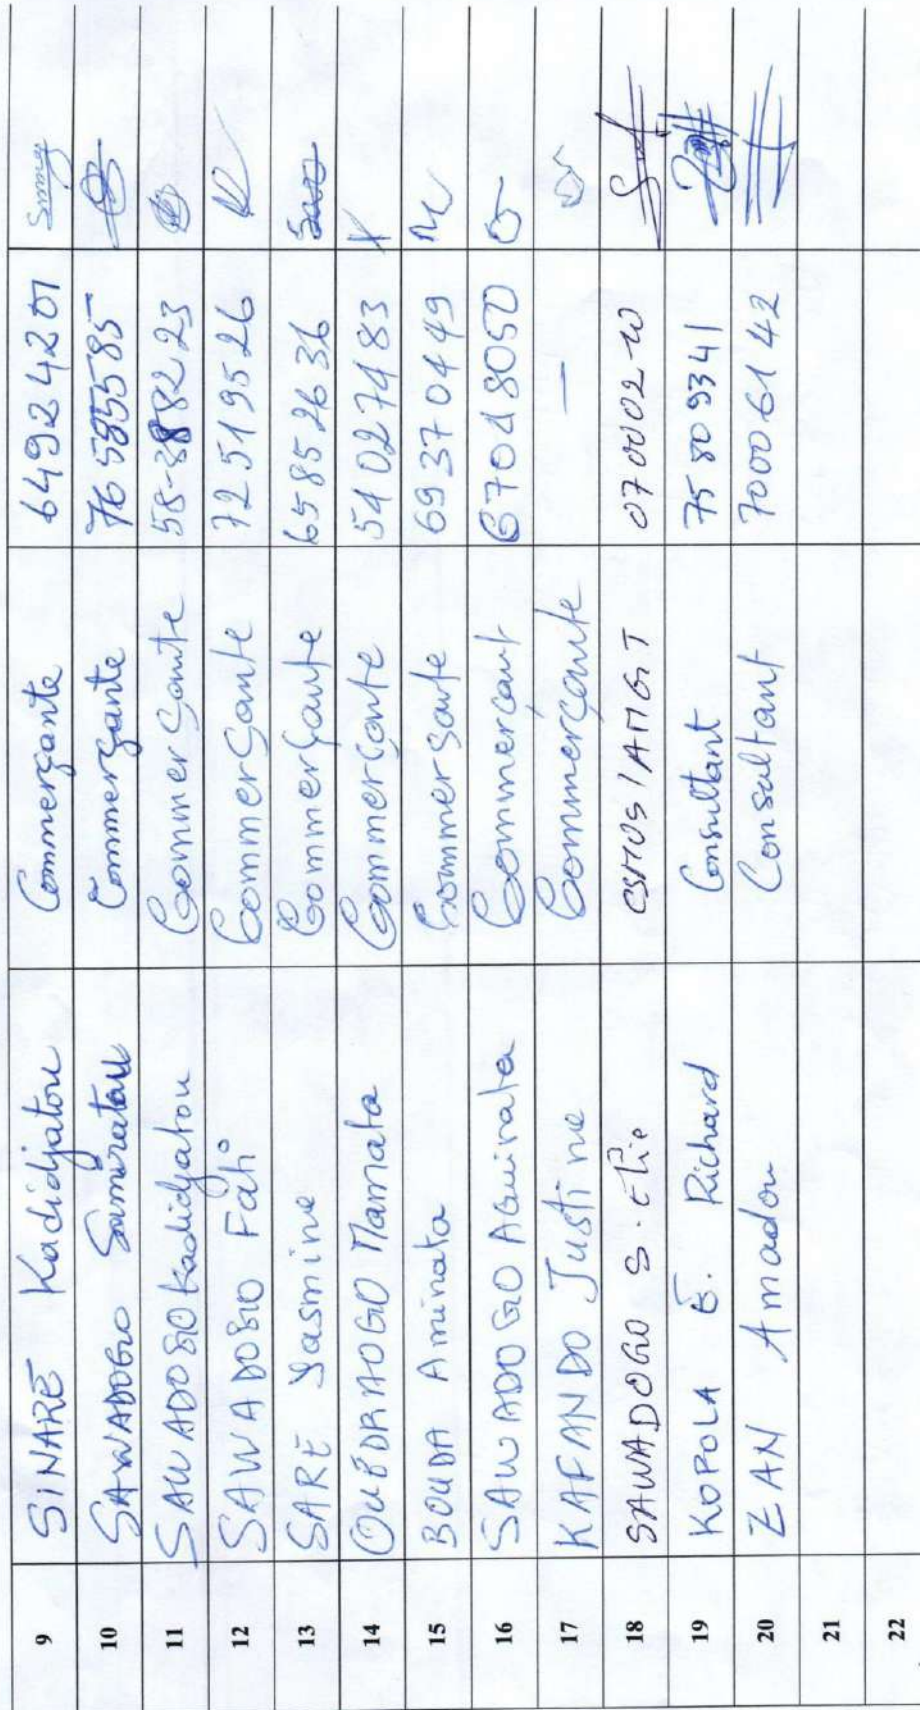 9 SINARÉ Kadidjatou Commerçante 64924201
10 SAWADOGO Samiratou Commerçante 76595585
11 SAWADOGO Kadidjatou Commerçante 58-888223
12 SAWADOGO Fati Commerçante 72519526
13 SARE Yasmine Commerçante 65852636
14 OUEDRAOGO Mamata Commerçante 54027483
15 BOUDA Aminata Commersante 69370449
16 SAWADOGO Aguirata Commerçant 67048050
17 KAFANDO Justine Commerçante —
18 SAWADOGO S. Elie 07000220
19 KOPOLA E. Richard Consultant 75809341
20 ZAN Amadou Consultant 70006142
21
22